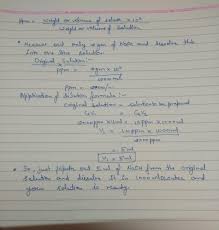 ppm = weight or volume of solute x 10⁶
Weight or volume of Solution
• Measure out only 2gm of NaOH and dissolve this
into one litre solution
Original Solution :-
ppm = 2gm x 10⁶
1000ml
ppm = 2000
Application of Dilution formula :-
Original solution = solution to be prepared
C₁V₁ = C₂V₂
2000ppm x V₁ = 10ppm x 1000ml
V₁ = 10ppm x 1000ml
2000ppm
= 5ml
V₁ = 5ml
• So, just pipette out 5ml of NaOH from the original
solution and dissolve it in 1000ml water and
your solution is ready.